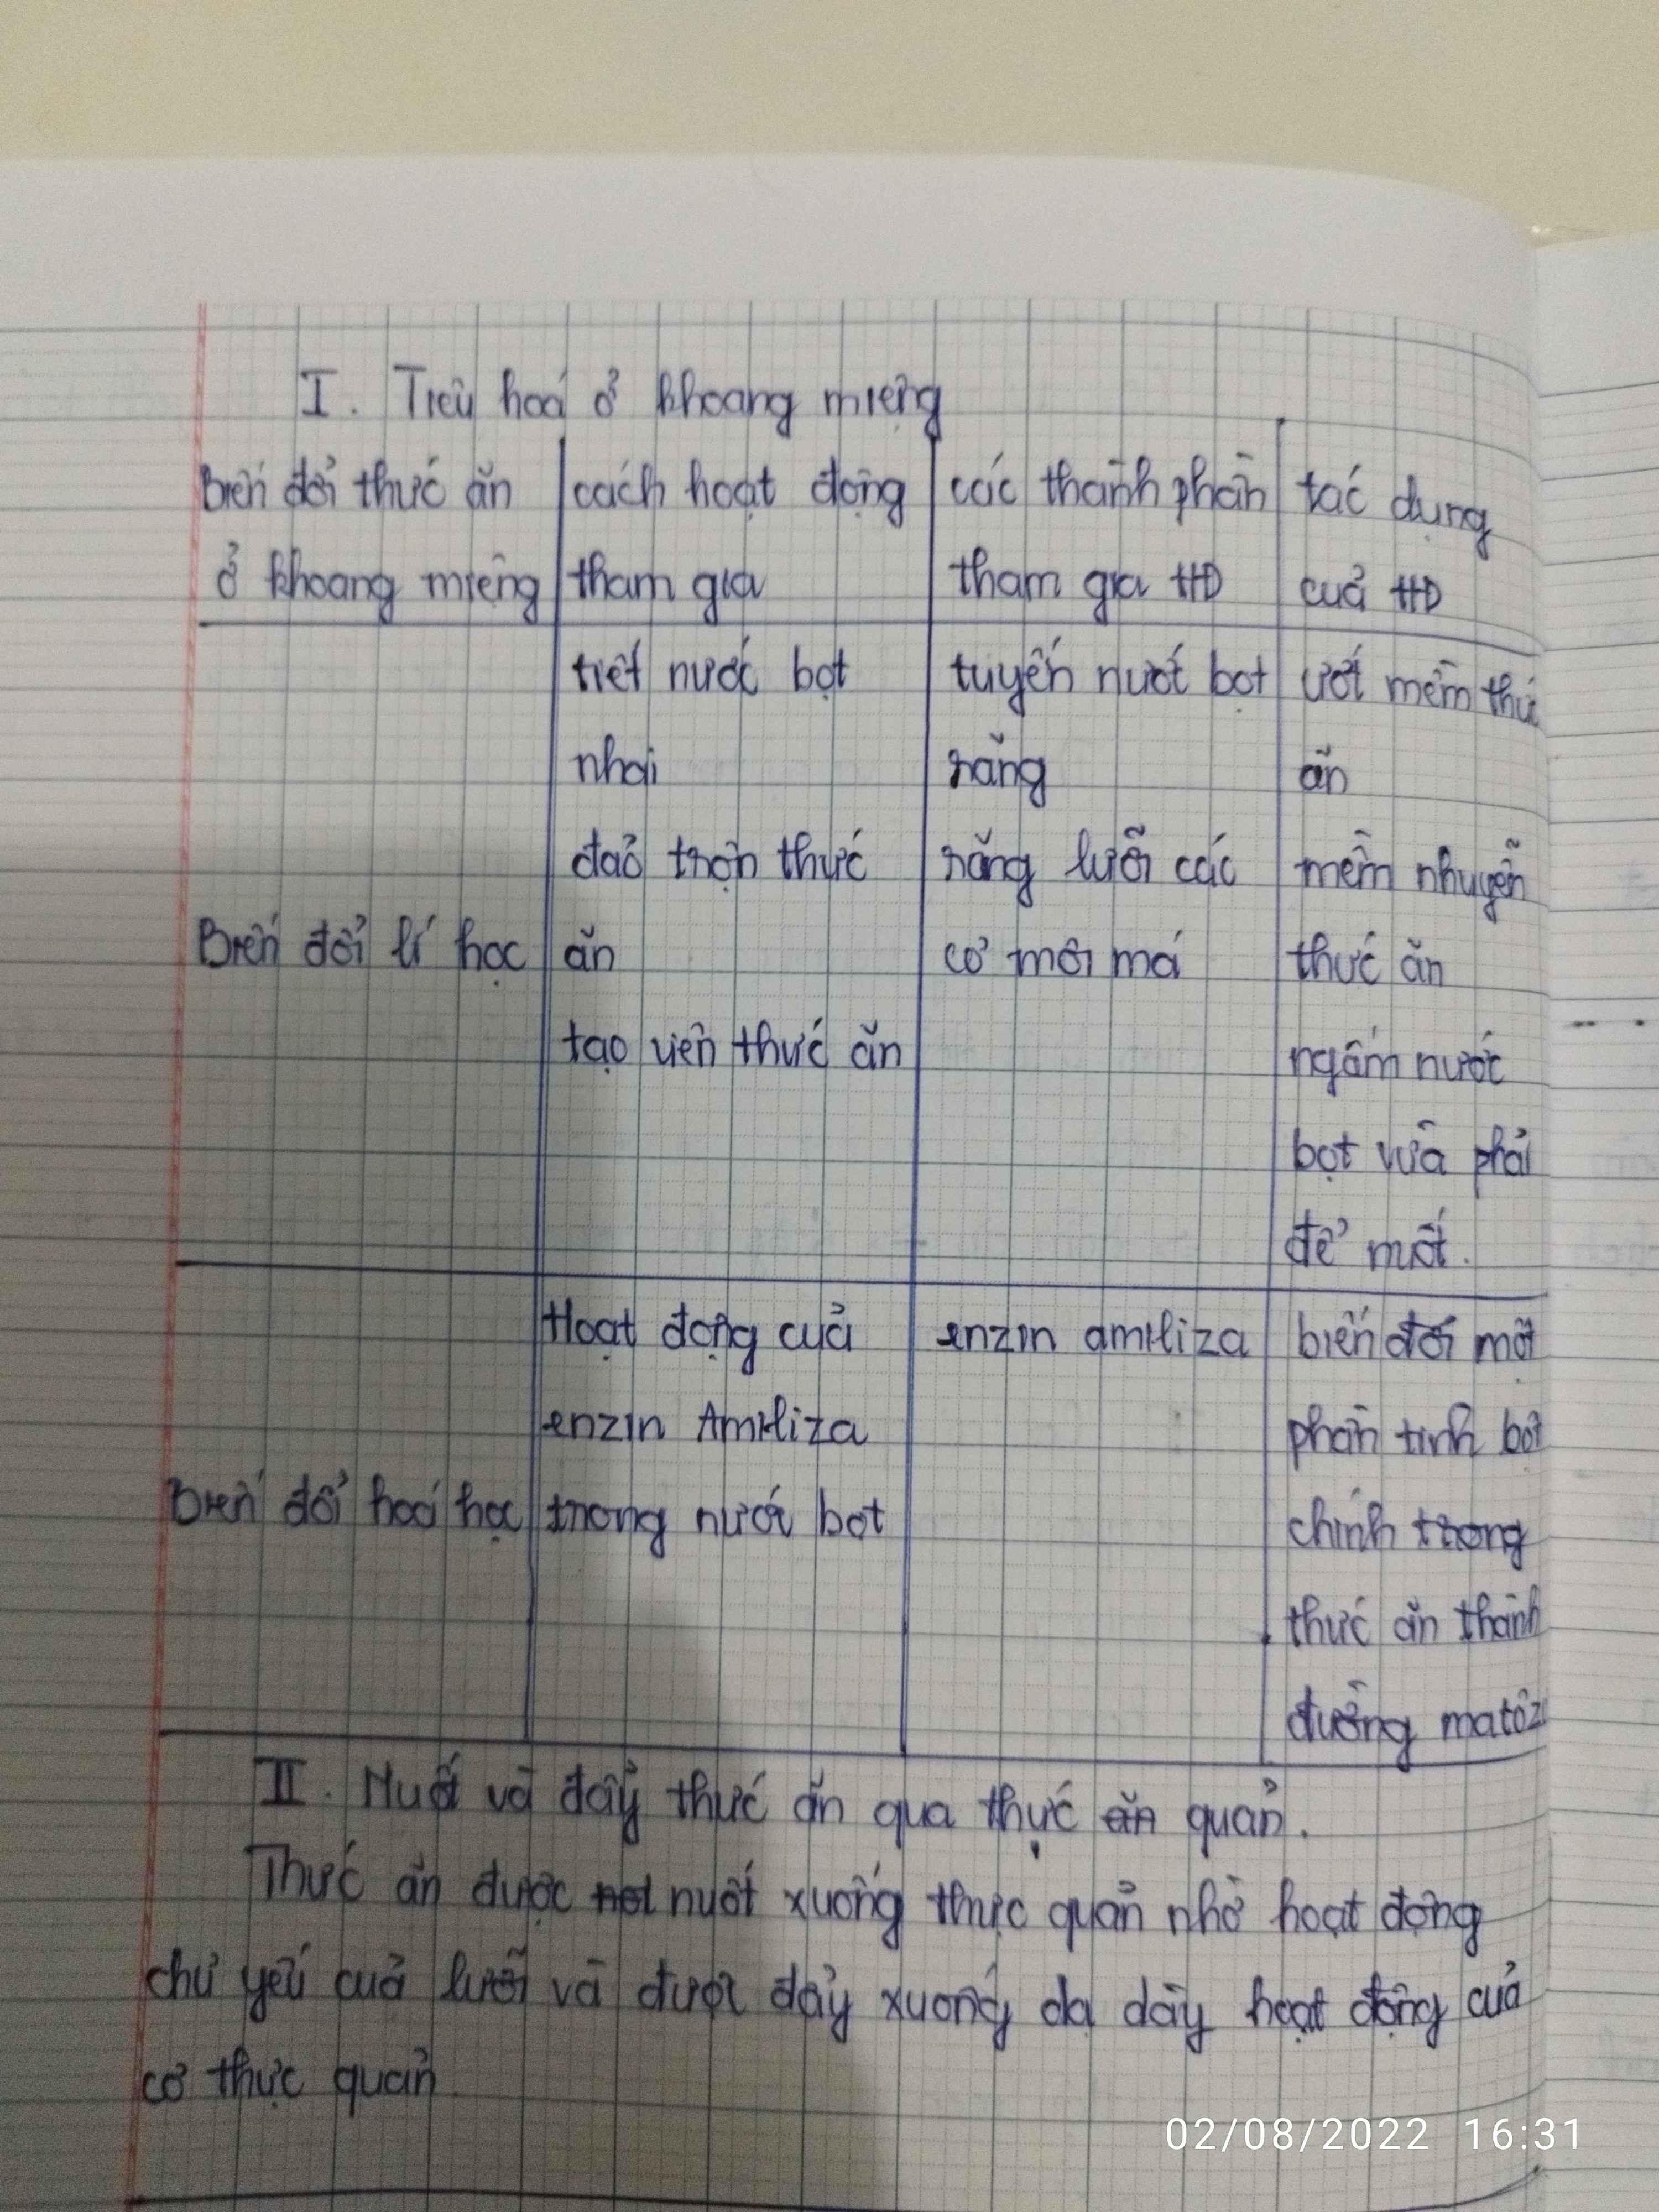 I. Tiêu hoá ở khoang miệng
Biến đổi thức ăn cách hoạt động các thành phần tác dụng
ở khoang miệng tham gia tham gia HĐ của HĐ
tiết nước bọt tuyến nướt bọt ướt mềm thứ
nhai răng ăn
đảo trộn thức răng lưỡi các mềm nhuyễn
Biến đổi lí học ăn cơ môi má thức ăn
tạo viên thức ăn ngấm nước
bọt vừa phải
để
Hoạt động của enzin amiliza biến đổi một
enzin Amiliza phần tinh bột
Biến đổi hoá học trong nước bọt chính trong
thức ăn thành
đường matôz
II. Nuốt và đẩy thức ăn qua thực ăn quản.
Thức ăn được nuốt xuống thực quản nhờ hoạt động
chủ yếu của lưỡi và được đẩy xuống dạ dày hoạt động của
cơ thực quản
02/08/2022 16:31